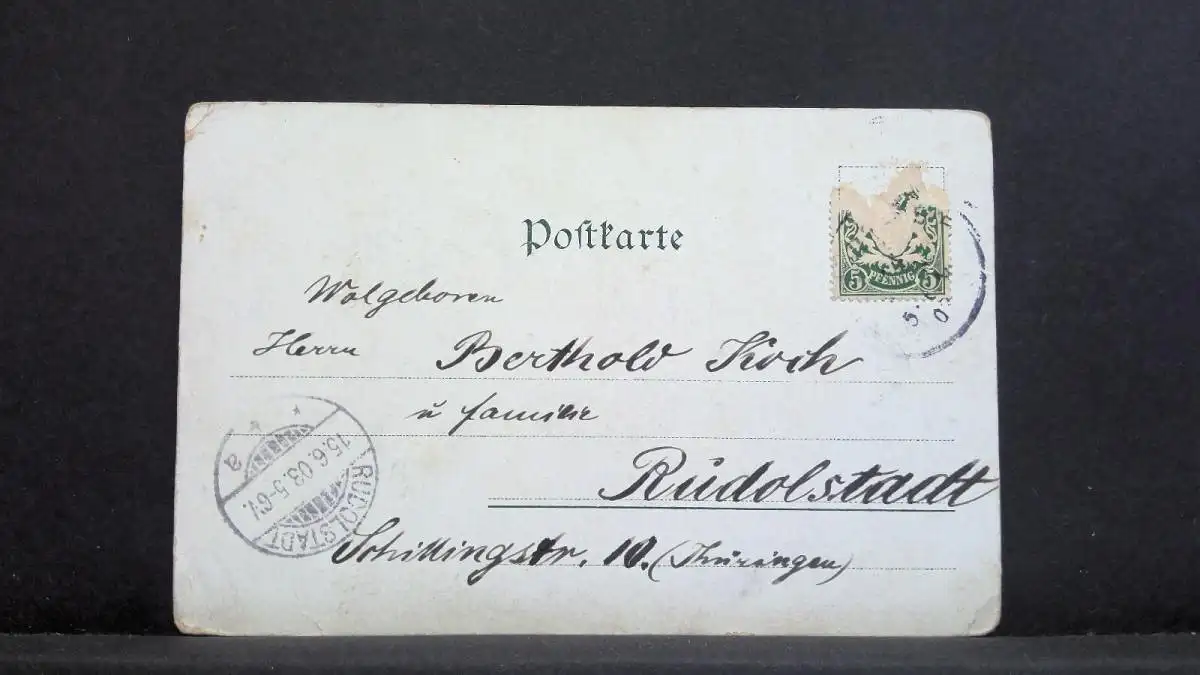 Postkarte
5 PFENNIG 5
Wolgeboren
Herrn Berthold Koch
u familie
Rudolstadt
Schillingstr. 10. (Thüringen)
RUDOLSTADT
15.6.03.5-6V.
a